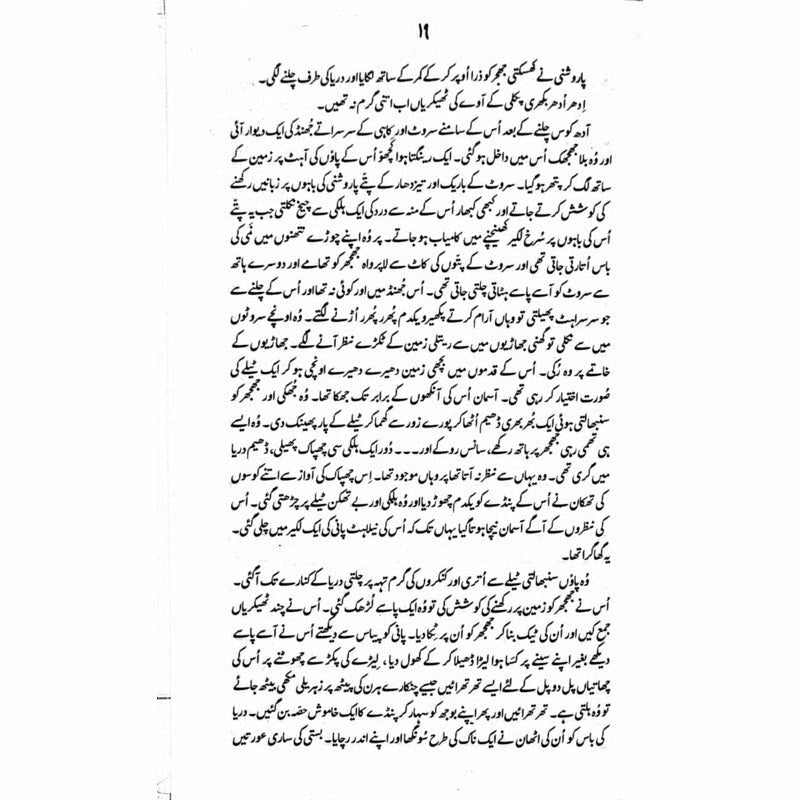 ۱۹
پاروشنی نے کھسکتی جھجر کو ذرا اُوپر کر کے کمر کے ساتھ لگایا اور دریا کی طرف چلنے لگی۔
اِدھر اُدھر بکھری پکلی کے آوے کی ٹھیکریاں اب اتنی گرم نہ تھیں۔
آدھ کوس چلنے کے بعد اُس کے سامنے سروٹ اور کاہی کے سرسراتے جُھنڈ کی ایک دیوار آئی
اور وُہ بلا جھجھک اُس میں داخل ہو گئی۔ ایک رینگتا ہوا کچھوَ اُس کے پاؤں کی آہٹ پر زمین کے
ساتھ لگ کر پتھر ہو گیا۔ سروٹ کے باریک اور تیز دھار کے پتّے پاروشنی کی باہوں پر زبانیں رکھنے
کی کوشش کرتے جاتے اور کبھی کبھار اُس کے منہ سے درد کی ایک ہلکی سے چیخ نکلتی جب یہ پتّے
اُس کی باہوں پر سُرخ لکیر کھینچنے میں کامیاب ہو جاتے۔ پر وُہ اپنے چوڑے نتھنوں میں نمی کی
باس اُتارتی جاتی تھی اور سروٹ کے پتّوں کی کاٹ سے لاپرواہ جھجھر کو تھامے اور دوسرے ہاتھ
سے سروٹ کو آسے پاسے ہٹاتی چلتی جاتی تھی۔ اُس جُھنڈ میں اور کوئی نہ تھا اور اُس کے چلنے سے
جو سرسراہٹ پھیلتی تو وہاں آرام کرتے پکھیرو یکدم پُھرر پُھرر اُڑنے لگتے۔ وُہ اونچے سروٹوں
میں سے نکلی تو گھنی جھاڑیوں میں سے ریتلی زمین کے ٹکڑے نظر آنے لگے۔ جھاڑیوں کے
خاتمے پر وہ رُکی۔ اُس کے قدموں میں بچھی زمین دھیرے دھیرے اونچی ہو کر ایک ٹیلے کی
صُورت اختیار کر رہی تھی۔ آسمان اُس کی آنکھوں کے برابر تک جھکا تھا۔ وُہ جُھکی اور جھجھر کو
سنبھالتی ہوئی ایک بُھربھری ڈھیم اُٹھا کر پورے زور سے گھما کر ٹیلے کے پار پھینک دی۔ وُہ ایسے
ہی تھمی رہی جھجھر پر ہاتھ رکھے، سانس روکے اور۔۔۔ دُور ایک ہلکی سی چھپاک پھیلی، ڈھیم دریا
میں گری تھی۔ وہ یہاں سے نظر نہ آتا تھا پر وہاں موجود تھا۔ اِس چھپاک کی آواز سے اتنے کوسوں
کی تھکان نے اُس کے پنڈے کو یکدم چھوڑ دیا اور وُہ ہلکی اور بے تھکن ٹیلے پر چڑھتی گئی۔ اُس
کی نظروں کے آگے آسمان نیچا ہوتا گیا یہاں تک کہ اُس کی نیلاہٹ پانی کی ایک لکیر میں چلی گئی۔
یہ گھاگرا تھا۔
وُہ پاؤں سنبھالتی ٹیلے سے اُتری اور کنکروں کی گرم تہہ پر چلتی دریا کے کنارے تک آ گئی۔
اُس نے جھجھر کو زمین پر رکھنے کی کوشش کی تو وُہ ایک پاسے لُڑھک گئی۔ اُس نے چند ٹھیکریاں
جمع کیں اور اُن کی ٹیک بنا کر جھجھر کو اُن پر ٹکا دیا۔ پانی کو پیاس سے دیکھتے اُس نے آسے پاسے
دیکھے بغیر اپنے سینے پر کسا ہوا لیڑا ڈھیلا کر کے کھول دیا، لیڑے کی پکڑ سے چھوٹنے پر اُس کی
چھاتیاں پل دو پل کے لئے ایسے تھرتھرائیں جیسے چنکارے ہرن کی پیٹھ پر زہریلی مکھی بیٹھ جائے
تو وُہ ہلتی ہے۔ تھرتھرائیں اور پھر اپنے بوجھ کو سہار کر پنڈے کا ایک خاموش حصّہ بن گئیں۔ دریا
کی باس کو اُن کی اٹھان نے ایک ناک کی طرح سُونگھا اور اپنے اندر رچایا۔ بستی کی ساری عورتیں